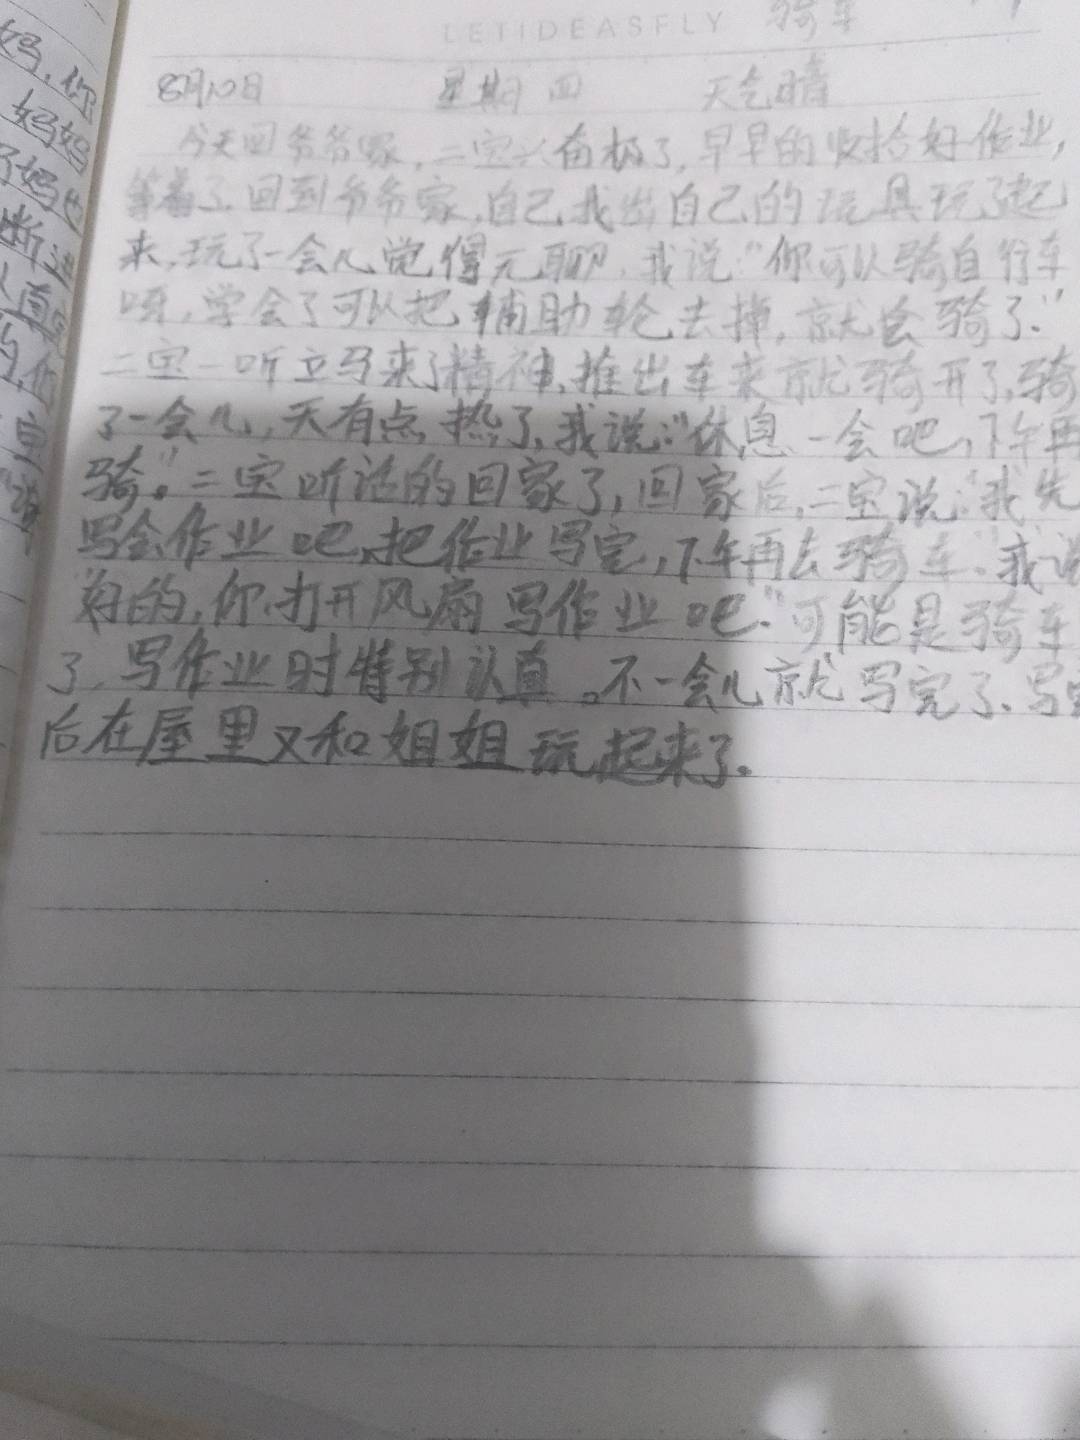 LETIDEASFLY 骑车
8月10日 星期四 天气晴
今天回爷爷家,二宝兴奋极了,早早的收拾好作业,
等着了.回到爷爷家,自己找出自己的玩具玩了起
来,玩了一会儿觉得无聊,我说:“你可以骑自行车
呀,学会了可以把辅助轮去掉,就会骑了.”
二宝一听立马来了精神,推出车来就骑开了,骑
了一会儿,天有点热了,我说:“休息一会吧,下午再
骑。”二宝听话的回家了,回家后,二宝说:“我先
写会作业吧,把作业写完,下午再去骑车.”我说
“好的,你打开风扇写作业吧.”可能是骑车
了,写作业时特别认真。不一会儿就写完了.写
后在屋里又和姐姐玩起来了.
妈,你
妈妈